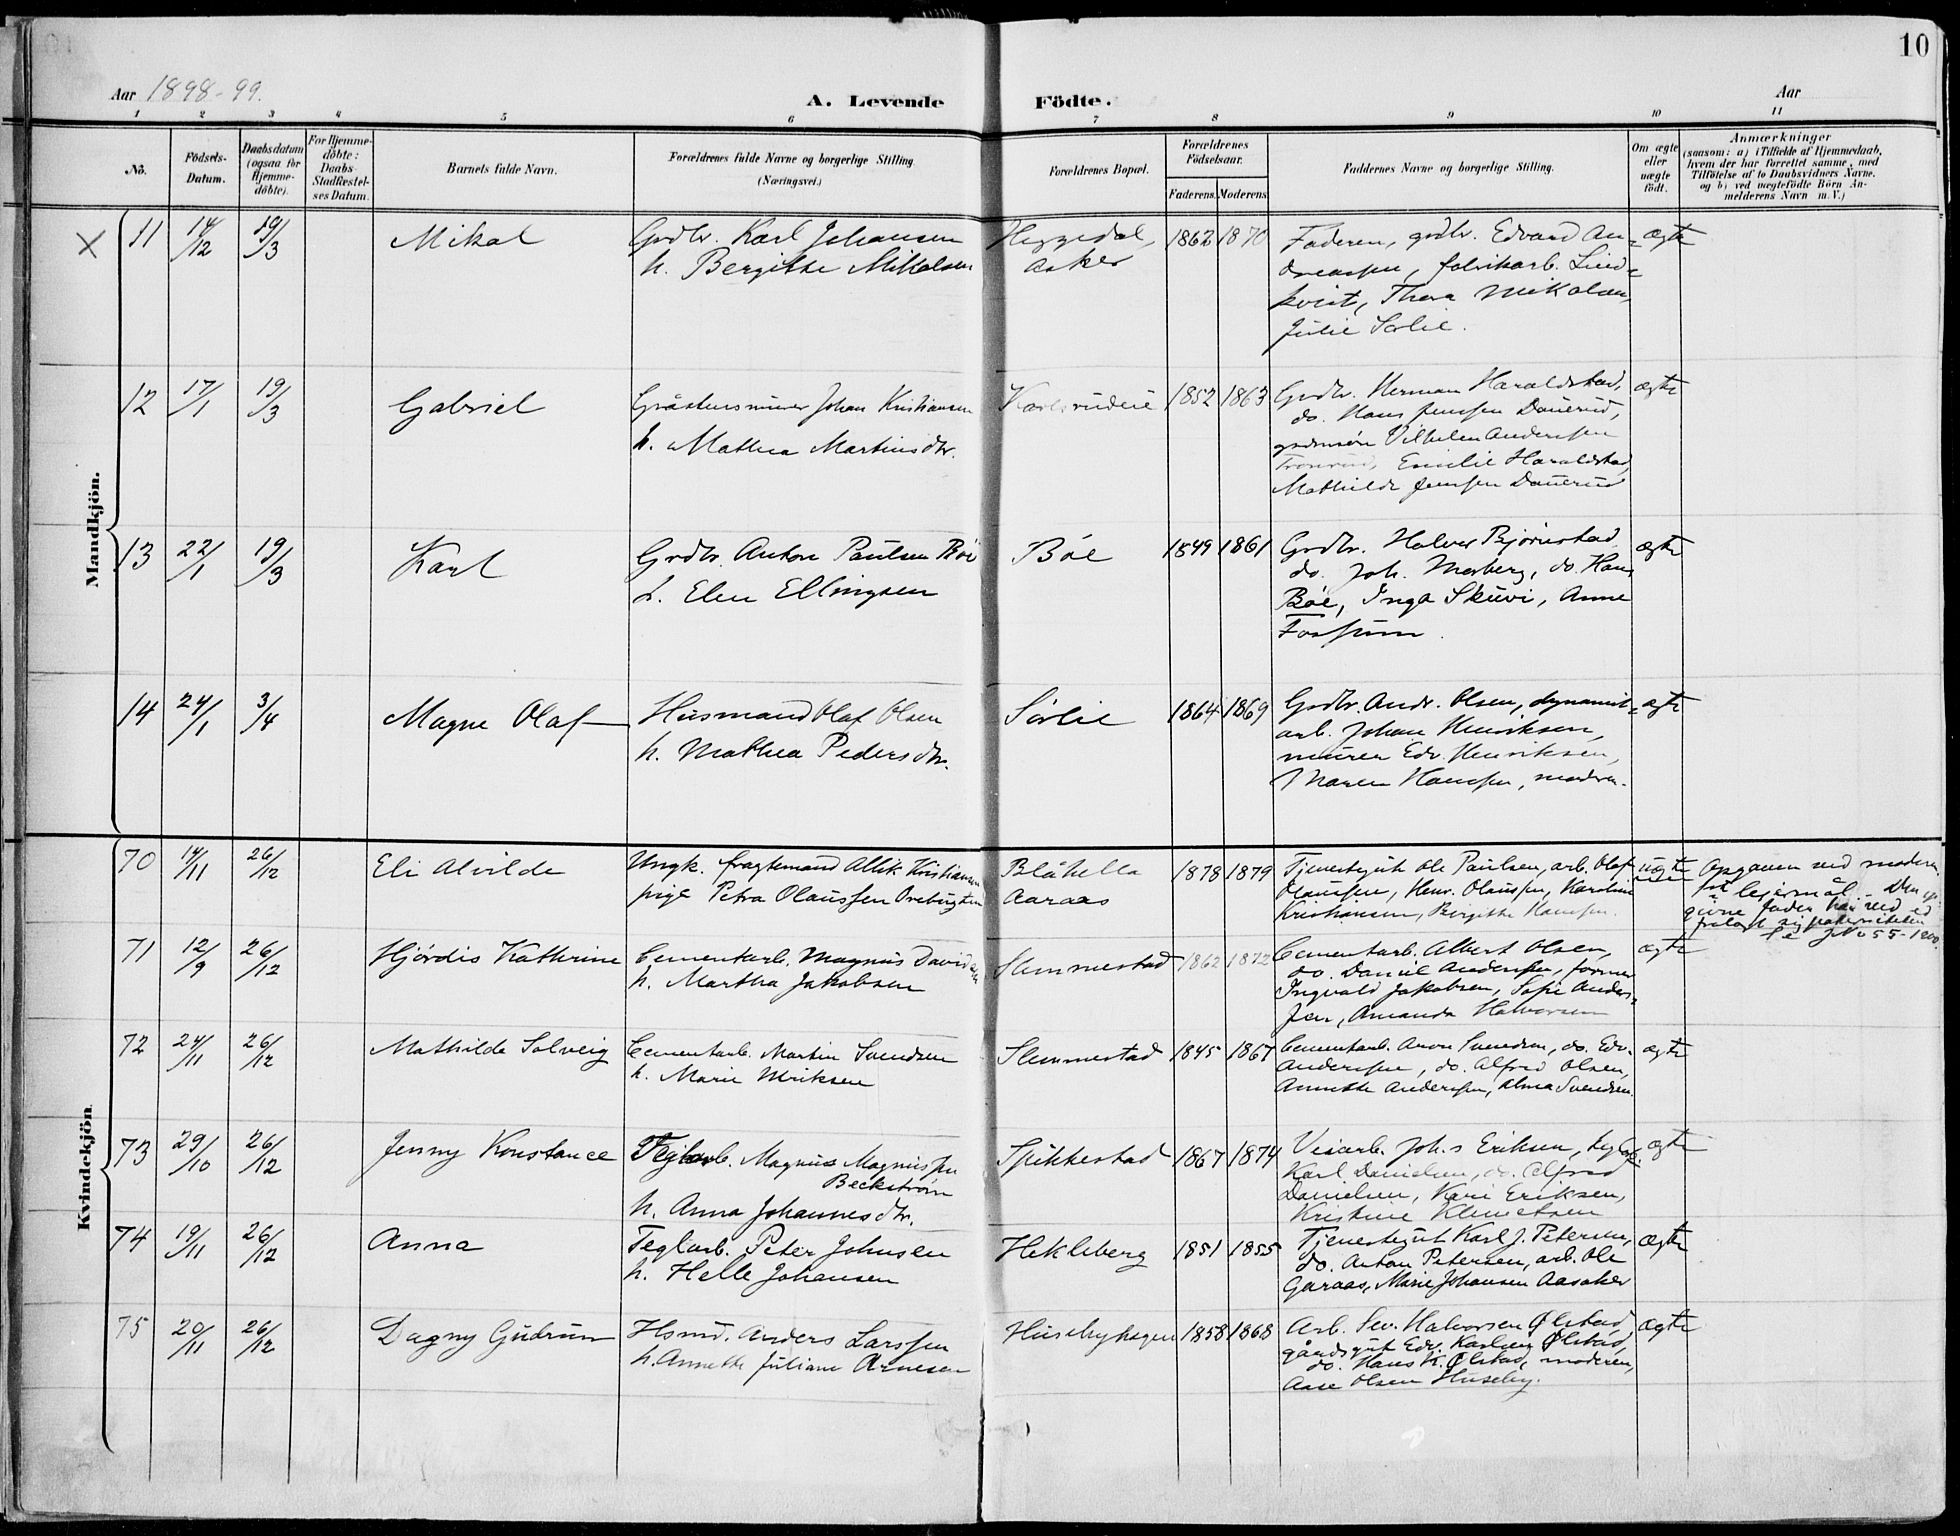 10
Aar 1898-99.
A. Levende Födte.
Aar
1 2 3 4 5 6 7 8 9 10 11
No.
Födsels-Datum.
Daabsdatum (ogsaa for Hjemme-döbte).
For Hjemme-döbte: Daabs-Stadfæstel-ses Datum.
Barnets fulde Navn.
Forældrenes fulde Navne og borgerlige Stilling. (Næringsvei.)
Forældrenes Bopæl.
Forældrenes Födselsaar.
Faderens. Moderens.
Faddernes Navne og borgerlige Stilling.
Om ægte eller uægte födt.
Anmærkninger
(saasom: a) i Tilfælde af Hjemmedaab,
hvem der har forrettet samme, med
Tilföielse af to Daabsvidners Navne,
og b) ved uægtefödte Börn An-
melderens Navn m. V.)
Mandkjön.
X 11 14/12 19/3 Mikal
Grdbr. Karl Johansen
h. Bergitte Mikkelsen
Heggedal,
Asker
1862 1870
Faderen, grdbr. Edvard An-
dreassen, fabrikarb. Lind-
kvist, Thora Mikalsen,
Julie Sørlie.
ægte
12 17/1 19/3 Gabriel
Gråstensmurer Johan Kristiansen
h. Mathea Martinsdtr.
Karlsrudeie
1852 1863
Grdbr. Herman Haraldstad,
do. Hans Jenssen Dauerud,
grdmsøn Vilhelm Anderssen
Tronrud, Emilie Haraldstad,
Mathilde Jenssen Dauerud
ægte
13 22/1 19/3 Karl
Grdbr. Anton Paulsen Bøe
h. Elen Ellingsen
Bøe
1849 1861
Grdbr. Halvor Bjørnstad
do. Joh. Morberg, do. Hans
Bøe, Inga Skuvi, Anne
Fossum.
ægte
14 24/1 3/4 Magne Olaf
Husmand Olaf Olsen
h. Mathea Pedersdtr.
Sørlie
1864 1869
Grdbr. Andr. Olsen, dynamit-
arb. Johan Henriksen,
murer Edv. Henriksen,
Maren Hanssen, moderen.
ægte
Kvindekjön.
70 14/11 26/12 Eli Alvilde
Ungk. fragtemand Allik Kristiansen
pige Petra Olaussen
Blåhella
Aaraas
1878 1879
Tjenestegut Ole Paulsen, arb. Olaf
Olaussen, Henr. Olaussen, Karoline
Kristiansen, Birgitte Hanssen.
uægte
Opgaven ved moderen
for leiermål - Den op-
givne fader har ved ed
fralagt sig paterniteten
Se JNo 55-1900.
71 12/9 26/12 Hjørdis Kathrine
Cementarb. Magnus Davidsen
h. Martha Jakobsen
Slemmestad
1862 1872
Cementarb. Albert Olsen,
do. Daniel Anderssen, former
Ingvald Jakobsen, Sofie Anders-
sen, Amanda Halvorsen
ægte
72 24/11 26/12 Mathilde Solveig
Cementarb. Martin Svendsen
h. Marie Ulriksen
Slemmestad
1845 1867
Cementarb. Aron Svendsen, do. Edv.
Anderssen, do. Alfred Olsen,
Annette Anderssen, Alma Svendsen.
ægte
73 29/10 26/12 Jenny Konstance
Teglarb. Magnus Magnussen
Beckstrøm
h. Anna Johannesdtr.
Spikkestad
1867 1874
Veiarb. Johs Eriksen, teglarb.
Karl Danielsen, do. Alfred
Danielsen, Kari Eriksen,
Kristine Klemetsen
ægte
74 19/11 26/12 Anna
Teglarb. Peter Johnsen
h. Helle Johansen
Hekleberg
1851 1855
Tjenestegut Karl J. Petersen,
do. Anton Petersen, arb. Ole
Garaas, Marie Johansen Aasaker
ægte
75 20/11 26/12 Dagny Gudrun
Hsmd. Anders Larssen
h. Annette Juliane Arnesen
Husebyhagen
1858 1868
Arb. Sev. Halvorsen Ølstad,
gårdsgut Edv. Karlsen Ølstad,
do. Hans K. Ølstad, moderen,
Aase Olsen Huseby.
ægte